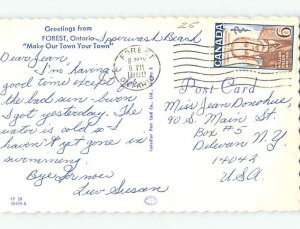 25
Greetings from
FOREST, Ontario Ipperwash Beach
"Make Our Town Your Town"
Dear Jean,
I'm having a
good time except for
the bad sun-burn
I got yesterday. The
water is cold so I
haven't yet gone in
swimming.
Bye for now
Luv Susan
FOREST
PM
1969
ONTARIO
CANADA
6
Post Card
Miss Jean Donohue,
40 S. Main St.
Box #5
Delevan N.Y.
14042
USA